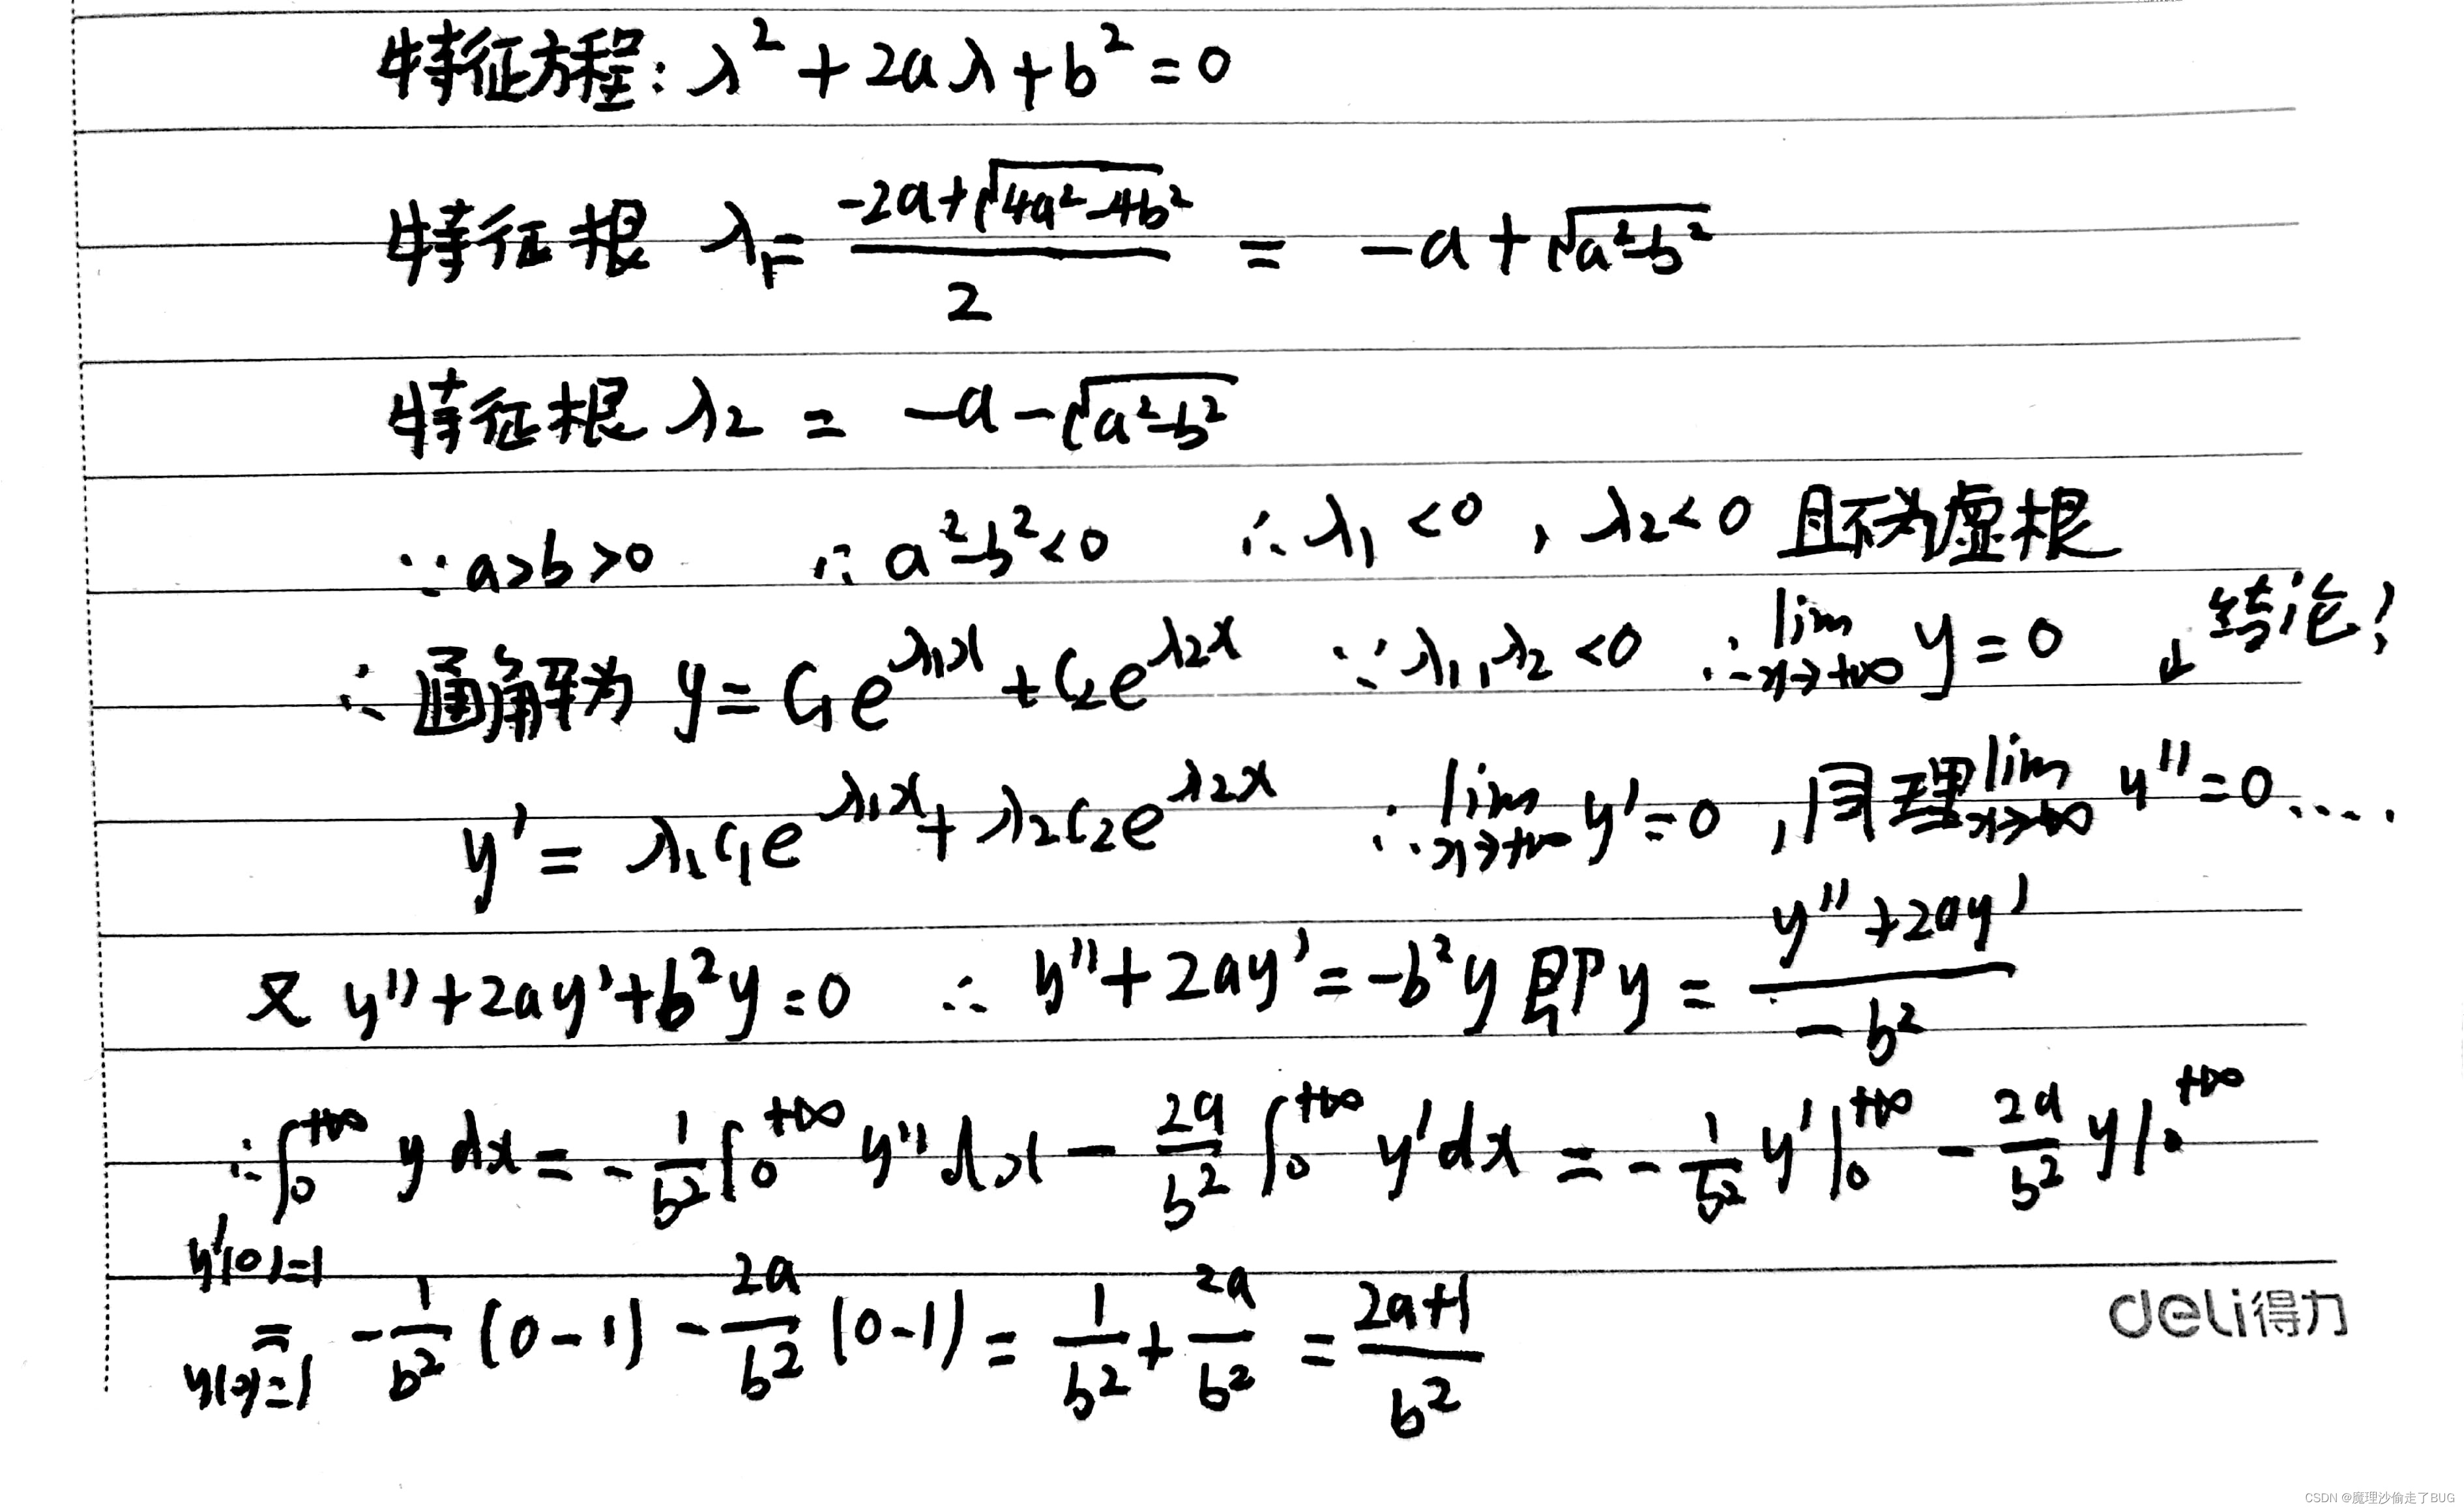 特征方程: λ² + 2aλ + b² = 0
特征根 λ₁ = (-2a+√(4a²-4b²))/2 = -a + √(a²-b²)
特征根 λ₂ = -a - √(a²-b²)
∵ a>b>0 ∴ a²-b²<0 ∴ λ₁<0, λ₂<0 且不为虚根
∴ 通解为 y = C₁e^(λ₁x) + C₂e^(λ₂x) ∵ λ₁,λ₂<0 ∴ lim_(x→+∞) y = 0 ↓ 结论!
y' = λ₁C₁e^(λ₁x) + λ₂C₂e^(λ₂x) ∴ lim_(x→+∞) y' = 0, 同理 lim_(x→+∞) y'' = 0 ....
又 y''+2ay'+b²y=0 ∴ y''+2ay'=-b²y 即 y = (y''+2ay')/(-b²)
∴ ∫₀^(+∞) y dx = -1/b² ∫₀^(+∞) y'' dx - 2a/b² ∫₀^(+∞) y' dx = -1/b² y'|₀^(+∞) - 2a/b² y|₀^(+∞)
y'(0)=1
= -1/b² (0-1) - 2a/b² (0-1) = 1/b² + 2a/b² = (2a+1)/b²
y(0)=1
deli得力
CSDN @魔理沙偷走了BUG